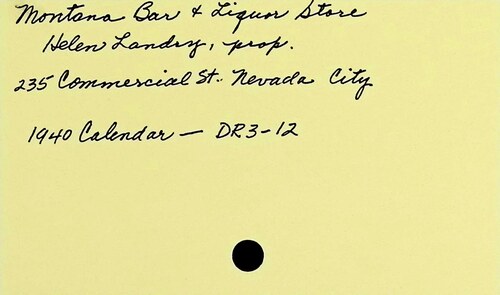 Montana Bar & Liquor Store
Helen Landry, prop.
235 Commercial St. Nevada City
1940 Calendar — DR3-12